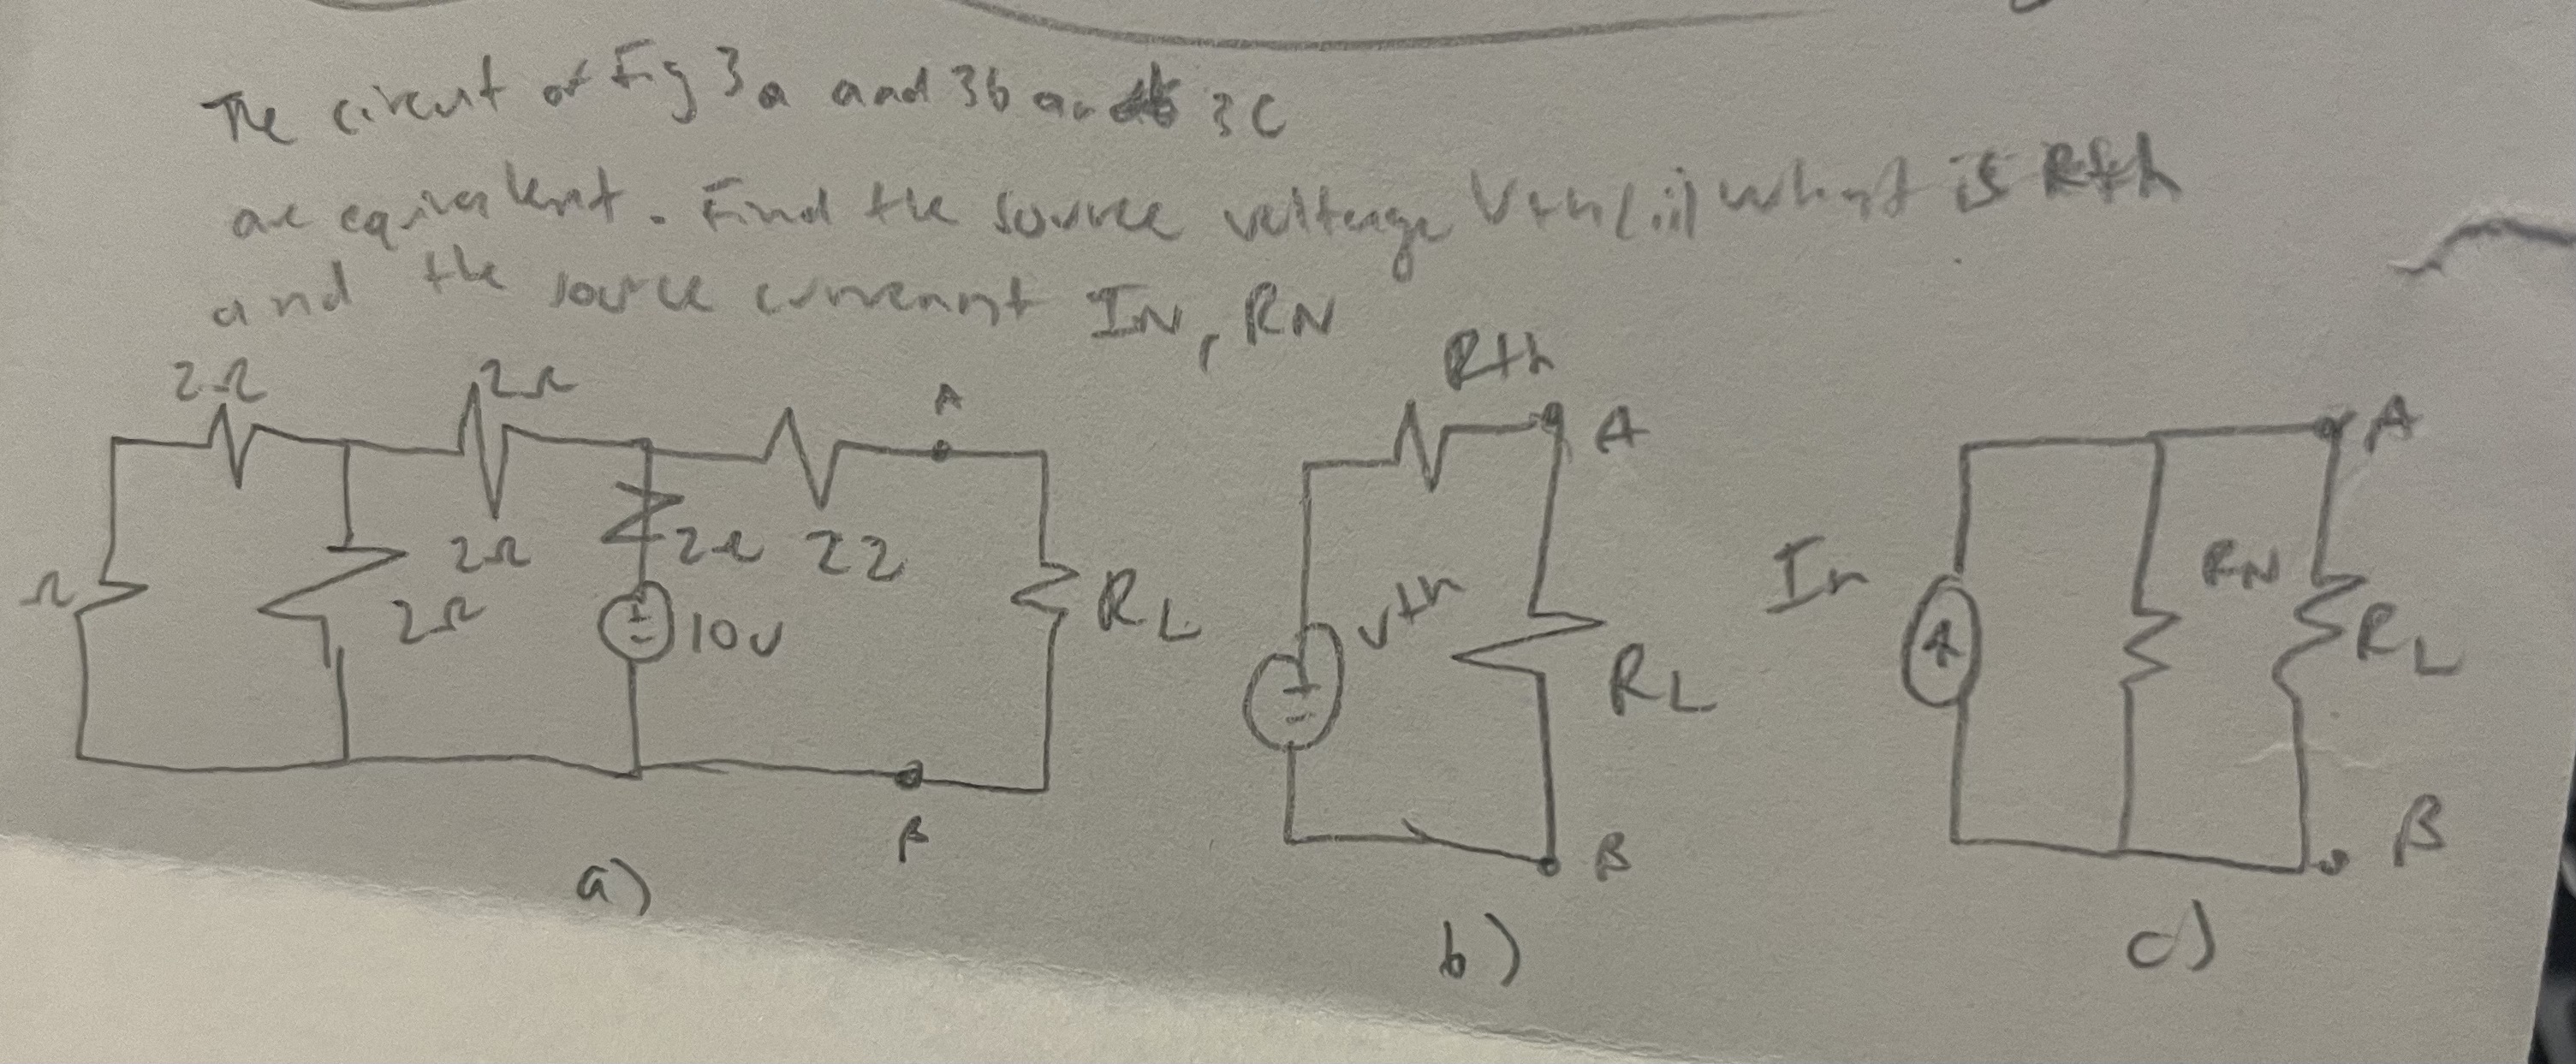 The circuit of Fig 3a and 3b and 3C
are equivalent. Find the source voltage Vth(ii) what is Rth
and the source currennt IN, RN
2Ω 2Ω A Rth
A A
Ω 2Ω 2Ω 22 RL Vth In RN RL
2Ω 10V RL
B B B
a) b) c)